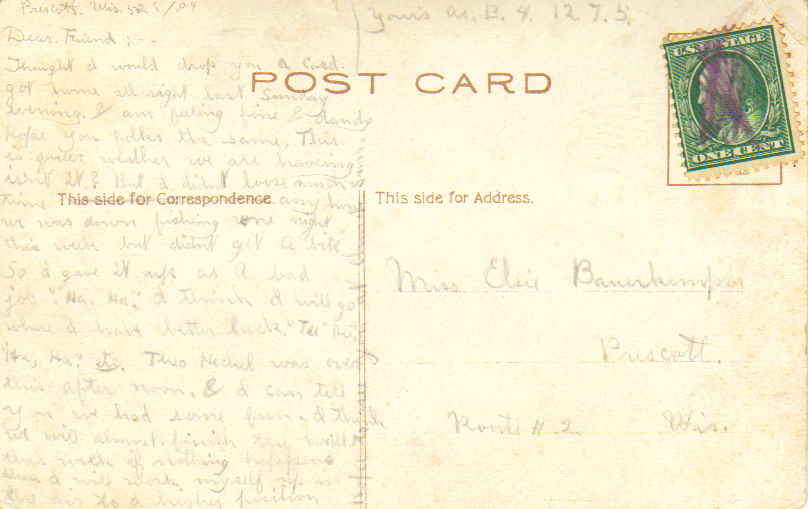 Prescott. Wis.
Dear. Friend;-.
Thought I would drop you a Card.
got home all right last Sunday
evening. I am feeling fine & dandy
hope you the same, This
is quite weather we are haveing
isn't it? But I didn't loose much
time any how
we was down fishing one night
this week but didn't get a bite
So I gave it up as a bad
job "Ha. Ha." I think I will go
where I have better luck. "Te"
"Ha, Ha." etc. Theo was over
this after noon, & I can tell
you we had some fun. I think
we will almost finish
this week if nothing happens
then I will work myself up in
the air to a higher position
Yours as. B. 4. 12. 7. 5.
POST CARD
This side for Correspondence
This side for Address.
U.S. POSTAGE
ONE CENT
Miss Elsie Bauerkemper
Prescott.
Route # 2 Wis.